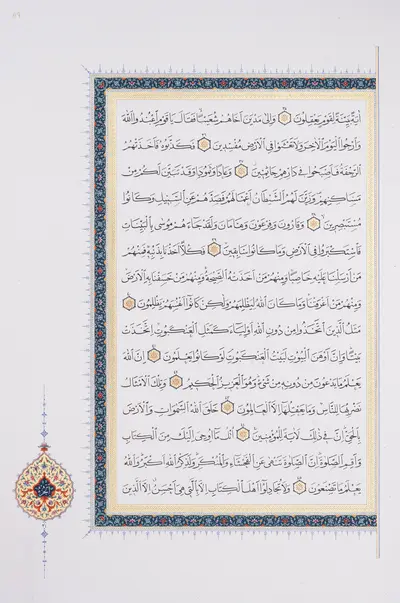 آيَةً بَيِّنَةً لِقَوْمٍ يَعْقِلُونَ وَإِلَىٰ مَدْيَنَ أَخَاهُمْ شُعَيْبًا فَقَالَ يَا قَوْمِ اعْبُدُوا اللَّهَ
وَارْجُوا الْيَوْمَ الْآخِرَ وَلَا تَعْثَوْا فِي الْأَرْضِ مُفْسِدِينَ فَكَذَّبُوهُ فَأَخَذَتْهُمُ
الرَّجْفَةُ فَأَصْبَحُوا فِي دَارِهِمْ جَاثِمِينَ وَعَادًا وَثَمُودَ وَقَدْ تَبَيَّنَ لَكُمْ مِنْ
مَسَاكِنِهِمْ وَزَيَّنَ لَهُمُ الشَّيْطَانُ أَعْمَالَهُمْ فَصَدَّهُمْ عَنِ السَّبِيلِ وَكَانُوا
مُسْتَبْصِرِينَ وَقَارُونَ وَفِرْعَوْنَ وَهَامَانَ وَلَقَدْ جَاءَهُمْ مُوسَىٰ بِالْبَيِّنَاتِ
فَاسْتَكْبَرُوا فِي الْأَرْضِ وَمَا كَانُوا سَابِقِينَ فَكُلًّا أَخَذْنَا بِذَنْبِهِ فَمِنْهُمْ
مَنْ أَرْسَلْنَا عَلَيْهِ حَاصِبًا وَمِنْهُمْ مَنْ أَخَذَتْهُ الصَّيْحَةُ وَمِنْهُمْ مَنْ خَسَفْنَا بِهِ الْأَرْضَ
وَمِنْهُمْ مَنْ أَغْرَقْنَا وَمَا كَانَ اللَّهُ لِيَظْلِمَهُمْ وَلَٰكِنْ كَانُوا أَنْفُسَهُمْ يَظْلِمُونَ
مَثَلُ الَّذِينَ اتَّخَذُوا مِنْ دُونِ اللَّهِ أَوْلِيَاءَ كَمَثَلِ الْعَنْكَبُوتِ اتَّخَذَتْ
بَيْتًا وَإِنَّ أَوْهَنَ الْبُيُوتِ لَبَيْتُ الْعَنْكَبُوتِ لَوْ كَانُوا يَعْلَمُونَ إِنَّ اللَّهَ
يَعْلَمُ مَا يَدْعُونَ مِنْ دُونِهِ مِنْ شَيْءٍ وَهُوَ الْعَزِيزُ الْحَكِيمُ وَتِلْكَ الْأَمْثَالُ
نَضْرِبُهَا لِلنَّاسِ وَمَا يَعْقِلُهَا إِلَّا الْعَالِمُونَ خَلَقَ اللَّهُ السَّمٰوَاتِ وَالْأَرْضَ
بِالْحَقِّ إِنَّ فِي ذَٰلِكَ لَآيَةً لِلْمُؤْمِنِينَ اتْلُ مَا أُوحِيَ إِلَيْكَ مِنَ الْكِتَابِ
وَأَقِمِ الصَّلٰوةَ إِنَّ الصَّلٰوةَ تَنْهَىٰ عَنِ الْفَحْشَاءِ وَالْمُنْكَرِ وَلَذِكْرُ اللَّهِ أَكْبَرُ وَاللَّهُ
يَعْلَمُ مَا تَصْنَعُونَ وَلَا تُجَادِلُوا أَهْلَ الْكِتَابِ إِلَّا بِالَّتِي هِيَ أَحْسَنُ إِلَّا الَّذِينَ